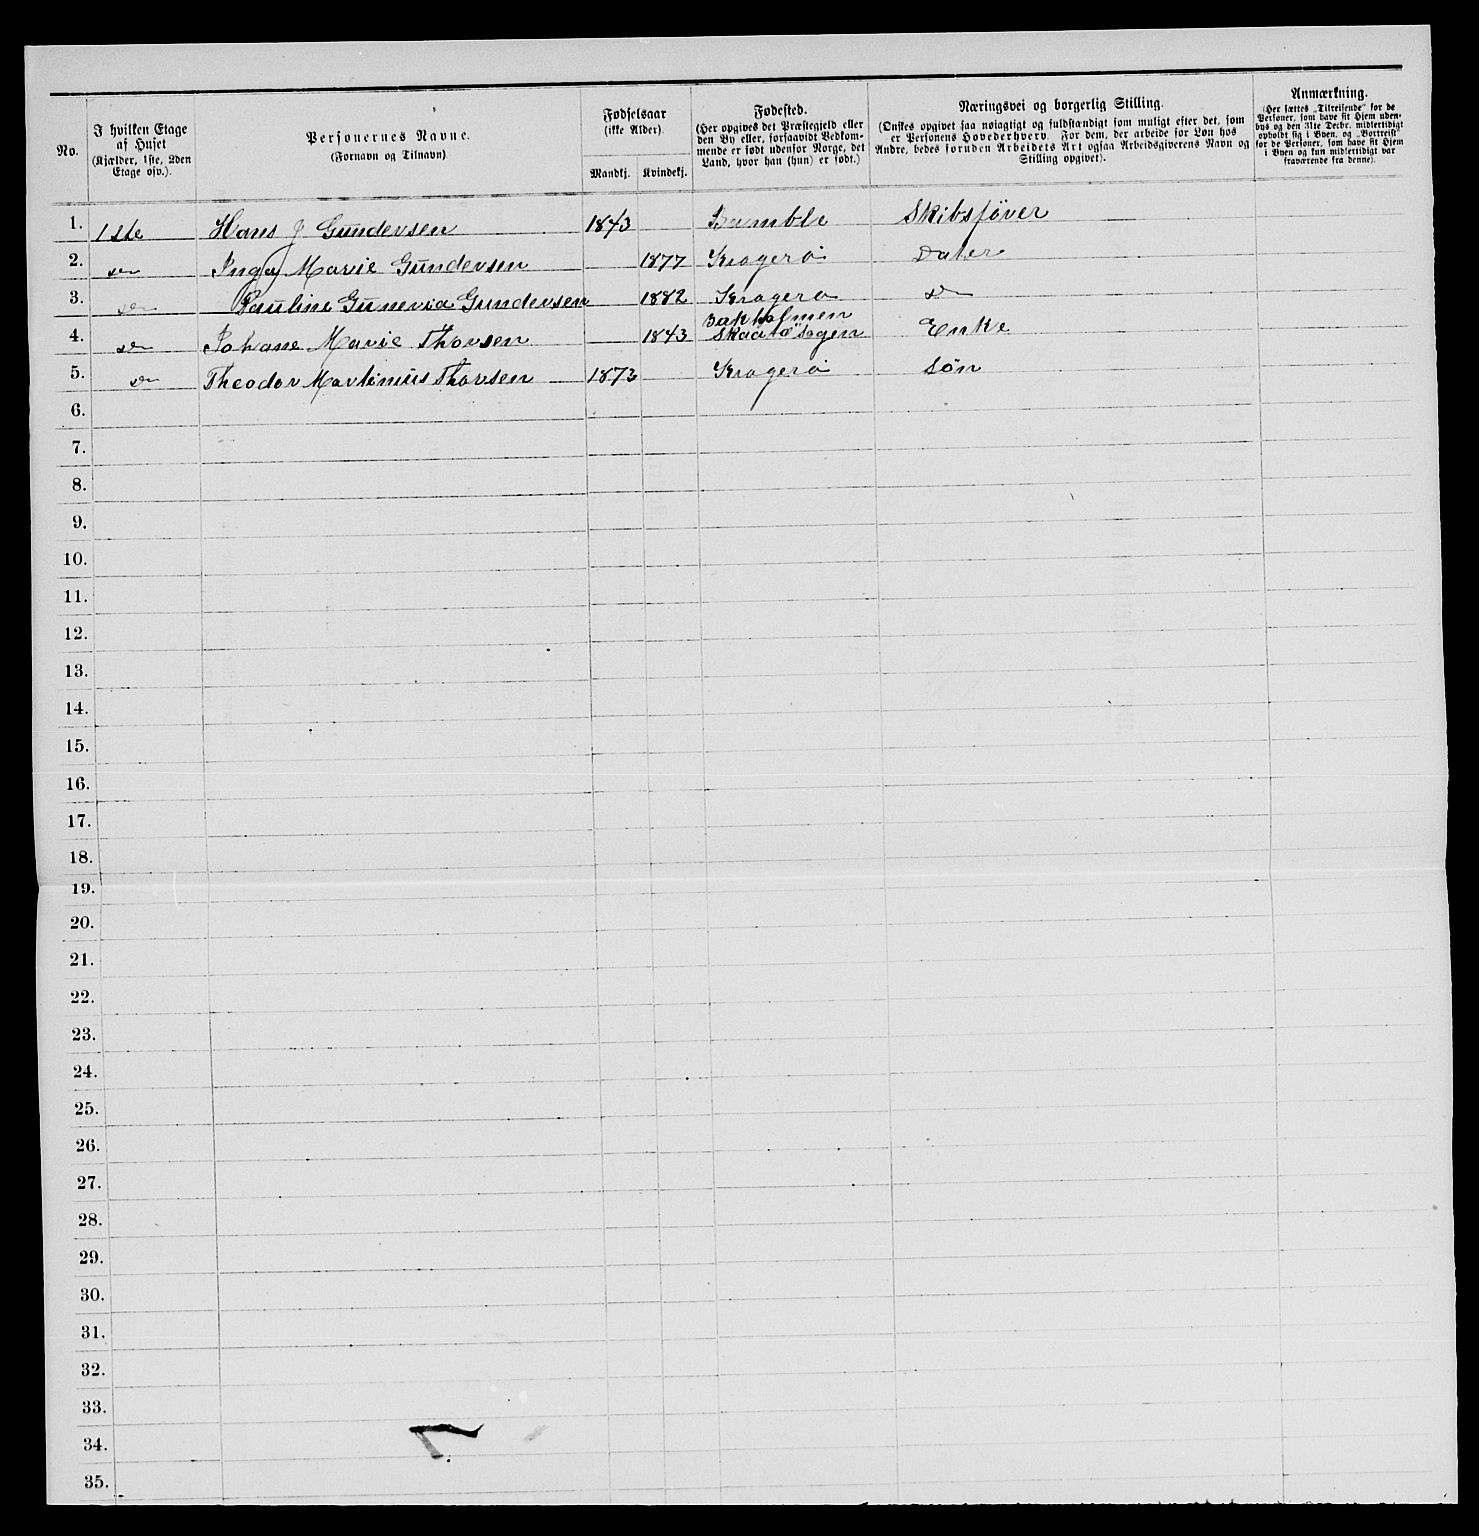 No.
I hvilken Etage af Huset (Kjælder, 1ste, 2den Etage osv.).
Personernes Navne. (Fornavn og Tilnavn)
Fødselsaar (ikke Alder)
Mandkj. Kvindekj.
Fødested. (Her opgives det Præstegjeld eller den By eller, forsaavidt Vedkommende er født udenfor Norge, det Land, hvor han (hun) er født.)
Næringsvei og borgerlig Stilling. (Ønskes opgivet saa nøiagtigt og fuldstændigt som muligt efter det, som er Personens Hovederhverv. For dem, der arbeide for Løn hos Andre, bedes foruden Arbeidets Art ogsaa Arbeidsgiverens Navn og Stilling opgivet).
Anmærkning. (Her sættes „Tilreisende“ for de Personer, som have sit Hjem udenbys og den 31te Decbr. midlertidigt opholdt sig i Byen, og „Bortreist“ for de Personer, som have sit Hjem i Byen og kun midlertidigt var fraværende fra denne).
1. 1ste Hans J Gundersen 1843 Bamble Skibsfører
2. do Inga Marie Gundersen 1877 Kragerø Dater
3. do Pauline Guneria Gundersen 1882 Kragerø do
Barkholmen
4. do Johane Marie Thorsen 1843 Skaatøsogen Enke
5. do Theodor Martinius Thorsen 1873 Kragerø Søn
6.
7.
8.
9.
10.
11.
12.
13.
14.
15.
16.
17.
18.
19.
20.
21.
22.
23.
24.
25.
26.
27.
28.
29.
30.
31.
32.
33.
34.
35.